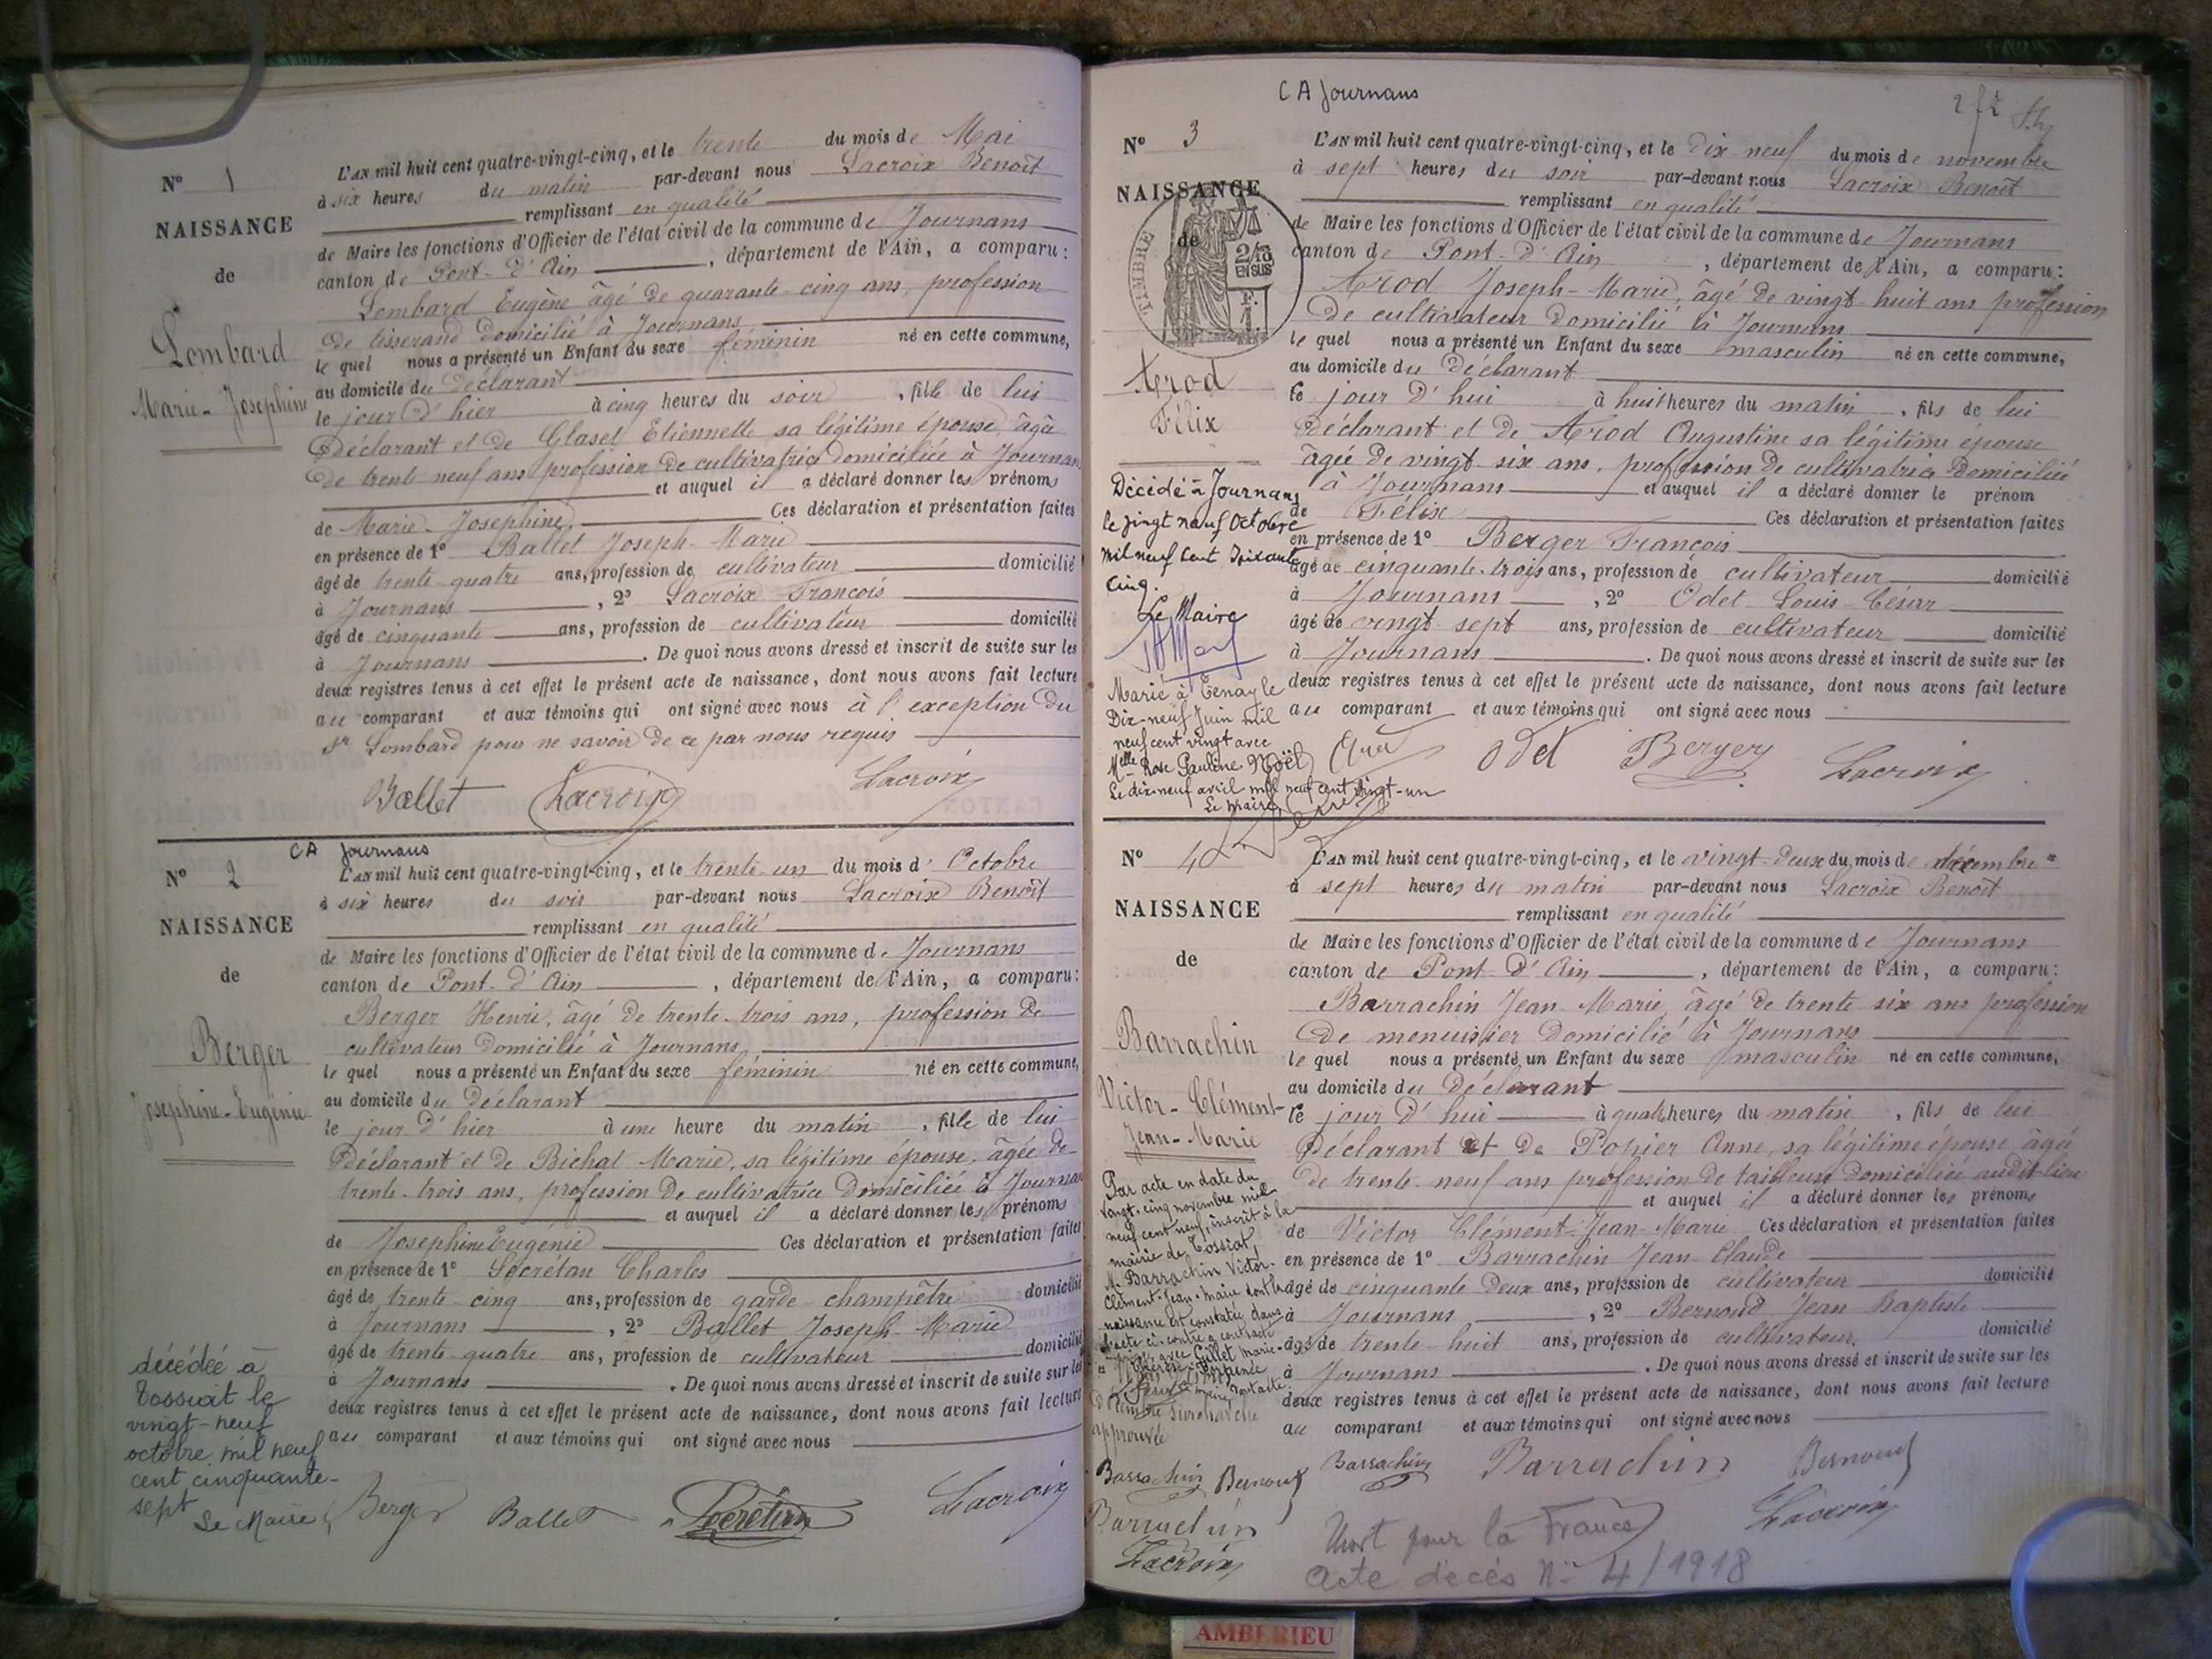 Nº 1
NAISSANCE
de
Lombard
Marie-Josephine
L'AN mil huit cent quatre-vingt-cinq, et le trente du mois de Mai
à six heures du matin par-devant nous Lacroix Benoît
remplissant en qualité
de Maire les fonctions d'Officier de l'état civil de la commune de Journans
canton de Pont-d'Ain, département de l'Ain, a comparu:
Lombard Eugène âgé de quarante-cinq ans, profession
de tisserand domicilié à Journans
le quel nous a présenté un Enfant du sexe féminin né en cette commune,
au domicile du déclarant
le jour d'hier à cinq heures du soir, fille de lui
déclarant et de Glasel Etiennette sa légitime épouse, âgée
de trente neuf ans profession de cultivatrice domiciliée à Journans
et auquel il a déclaré donner les prénoms
de Marie-Josephine. Ces déclaration et présentation faites
en présence de 1º Ballet Joseph-Marie
âgé de trente-quatre ans, profession de cultivateur domicilié
à Journans, 2º Lacroix François
âgé de cinquante ans, profession de cultivateur domicilié
à Journans. De quoi nous avons dressé et inscrit de suite sur les
deux registres tenus à cet effet le présent acte de naissance, dont nous avons fait lecture
au comparant et aux témoins qui ont signé avec nous à l'exception du
Sr Lombard pour ne savoir de ce par nous requis
Ballet Lacroix Lacroix
CA Journans
Nº 2
NAISSANCE
de
Berger
Josephine-Eugénie
L'AN mil huit cent quatre-vingt-cinq, et le trente un du mois d'Octobre
à six heures du soir par-devant nous Lacroix Benoît
remplissant en qualité
de Maire les fonctions d'Officier de l'état civil de la commune de Journans
canton de Pont-d'Ain, département de l'Ain, a comparu:
Berger Henri, âgé de trente-trois ans, profession de
cultivateur domicilié à Journans
le quel nous a présenté un Enfant du sexe féminin né en cette commune,
au domicile du déclarant
le jour d'hier à une heure du matin, fille de lui
déclarant et de Bichat Marie, sa légitime épouse, âgée de
trente-trois ans, profession de cultivatrice domiciliée à Journans
et auquel il a déclaré donner les prénoms
de Josephine Eugénie Ces déclaration et présentation faites
en présence de 1º Secrétan Charles
âgé de trente-cinq ans, profession de garde-champêtre domicilié
à Journans, 2º Ballet Joseph-Marie
âgé de trente-quatre ans, profession de cultivateur domicilié
à Journans. De quoi nous avons dressé et inscrit de suite sur les
deux registres tenus à cet effet le présent acte de naissance, dont nous avons fait lecture
au comparant et aux témoins qui ont signé avec nous
décédée à
Tossiat le
vingt-neuf
octobre mil neuf
cent cinquante-
sept
Le Maire,
Berger Ballet Secrétan Lacroix
CA Journans
Nº 3
NAISSANCE
de
TIMBRE
2/10
EN SUS
Arod
Félix
L'AN mil huit cent quatre-vingt-cinq, et le dix neuf du mois de novembre
à sept heures du soir par-devant nous Lacroix Benoît
remplissant en qualité
de Maire les fonctions d'Officier de l'état civil de la commune de Journans
canton de Pont-d'Ain, département de l'Ain, a comparu:
Arod Joseph-Marie, âgé de vingt-huit ans profession
de cultivateur domicilié à Journans
le quel nous a présenté un Enfant du sexe masculin né en cette commune,
au domicile du déclarant
le jour d'hui à huit heures du matin, fils de lui
déclarant et de Arod Augustine sa légitime épouse
âgée de vingt-six ans, profession de cultivatrice domiciliée
à Journans et auquel il a déclaré donner le prénom
de Félix Ces déclaration et présentation faites
en présence de 1º Berger François
âgé de cinquante-trois ans, profession de cultivateur domicilié
à Journans, 2º Odet Louis-César
âgé de vingt-sept ans, profession de cultivateur domicilié
à Journans. De quoi nous avons dressé et inscrit de suite sur les
deux registres tenus à cet effet le présent acte de naissance, dont nous avons fait lecture
au comparant et aux témoins qui ont signé avec nous
Décédé à Journans
le vingt neuf Octobre
mil neuf cent soixante
cinq.
Le Maire
Marié à Tenay le
Dix-neuf Juin mil
neuf cent vingt avec
Melle Rose Pauline Noël
Le dix-neuf avril mil neuf cent vingt-un
Le maire
Odet Berger Lacroix
Nº 4
NAISSANCE
de
Barrachin
Victor-Clément-
Jean-Marie
L'AN mil huit cent quatre-vingt-cinq, et le vingt-deux du mois de décembre
à sept heures du matin par-devant nous Lacroix Benoît
remplissant en qualité
de Maire les fonctions d'Officier de l'état civil de la commune de Journans
canton de Pont-d'Ain, département de l'Ain, a comparu:
Barrachin Jean-Marie, âgé de trente-six ans profession
de menuisier domicilié à Journans
le quel nous a présenté un Enfant du sexe masculin né en cette commune,
au domicile du déclarant
le jour d'hui à quatre heures du matin, fils de lui
déclarant et de Pohier Anne, sa légitime épouse âgée
de trente-neuf ans profession de tailleuse domiciliée audit lieu
et auquel il a déclaré donner les prénoms
de Victor Clément-Jean-Marie Ces déclaration et présentation faites
en présence de 1º Barrachin Jean-Claude
âgé de cinquante deux ans, profession de cultivateur domicilié
à Journans, 2º Bernoud Jean Baptiste
âgé de trente-huit ans, profession de cultivateur. domicilié
à Journans. De quoi nous avons dressé et inscrit de suite sur les
deux registres tenus à cet effet le présent acte de naissance, dont nous avons fait lecture
au comparant et aux témoins qui ont signé avec nous
Par acte en date du
vingt-cinq novembre mil
neuf cent neuf, inscrit à la
mairie de Tossiat,
M. Barrachin Victor-
Clément-Jean-Marie dont la
naissance est constatée dans
l'acte ci-contre a contracté
avec Gillet Marie-
surchargé
approuvée
Barrachin Bernoud
Barrachin
Lacroix
Barrachin Barrachin Bernoud
Lacroix
Mort pour la France
Acte décès Nº 4/1918
AMBERIEU